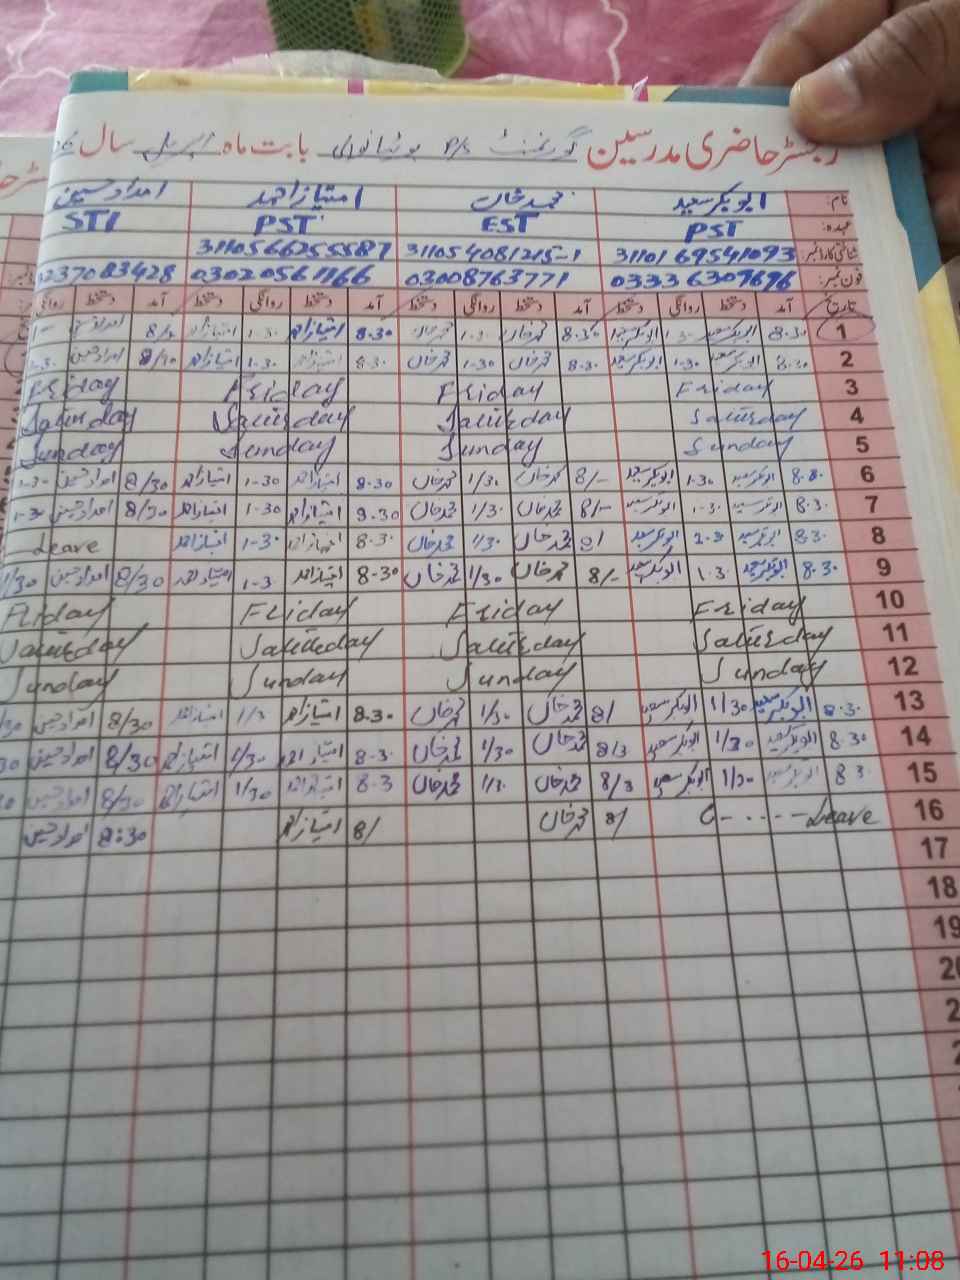 رجسٹر حاضری مدرسین گورنمنٹ P/S بابت ماہ اپریل سال
نام: ابوبکر سعید محمد خان امتیاز احمد امداد حسین
عہدہ: PST EST PST STI
شناختی کارڈ نمبر: 31101 69541093 31105 4081215-1 3110566255587
فون نمبر: 03336309696 03008763771 03020561166 0237083428
تاریخ آمد دستخط روانگی دستخط آمد دستخط روانگی دستخط آمد دستخط روانگی دستخط آمد دستخط روانگی
1 8.30 ابوبکر سعید 1.30 ابوبکر سعید 8.30 محمد خان 1.30 محمد خان 8.30 امتیاز احمد 1.30 امتیاز احمد 8/30 امداد حسین 1-
2 8.30 ابوبکر سعید 1.30 ابوبکر سعید 8.3. محمد خان 1-30 محمد خان 8.3. امتیاز احمد 1.30 امتیاز احمد 8/30 امداد حسین 1.3.
3 Friday Friday Friday Friday
4 Saturday Saturday Saturday Saturday
5 Sunday Sunday Sunday Sunday
6 8.3. ابوبکر سعید 1.30 ابوبکر سعید 8/- محمد خان 1/30 محمد خان 8.30 امتیاز احمد 1-30 امتیاز احمد 8/30 امداد حسین 1-3-
7 8.3. ابوبکر سعید 1.3. ابوبکر سعید 8/- محمد خان 1/30 محمد خان 8.30 امتیاز احمد 1-30 امتیاز احمد 8/30 امداد حسین 1-3-
8 8.3. ابوبکر سعید 1.3. ابوبکر سعید 8/ محمد خان 1/30 محمد خان 8.3. امتیاز احمد 1-3. امتیاز احمد Leave
9 8.3. ابوبکر سعید 1.3. ابوبکر سعید 8/- محمد خان 1/30 محمد خان 8-30 امتیاز احمد 1-3 امتیاز احمد 8/30 امداد حسین 1/30
10 Friday Friday Friday Friday
11 Saturday Saturday Saturday Saturday
12 Sunday Sunday Sunday Sunday
13 8.3. ابوبکر سعید 1/30 ابوبکر سعید 8/ محمد خان 1/30 محمد خان 8.30 امتیاز احمد 1/3 امتیاز احمد 8/30 امداد حسین /30
14 8.30 ابوبکر سعید 1/30 ابوبکر سعید 8/3 محمد خان 1/30 محمد خان 8.3. امتیاز احمد 1/30 امتیاز احمد 8/30 امداد حسین 30
15 8 3. ابوبکر سعید 1/30 ابوبکر سعید 8/3 محمد خان 1/3. محمد خان 8.3 امتیاز احمد 1/30 امتیاز احمد 8/30 امداد حسین
16 Leave 8/ محمد خان 8/ امتیاز احمد 8:30 امداد حسین
17
18
19
20
16-04-26 11:08